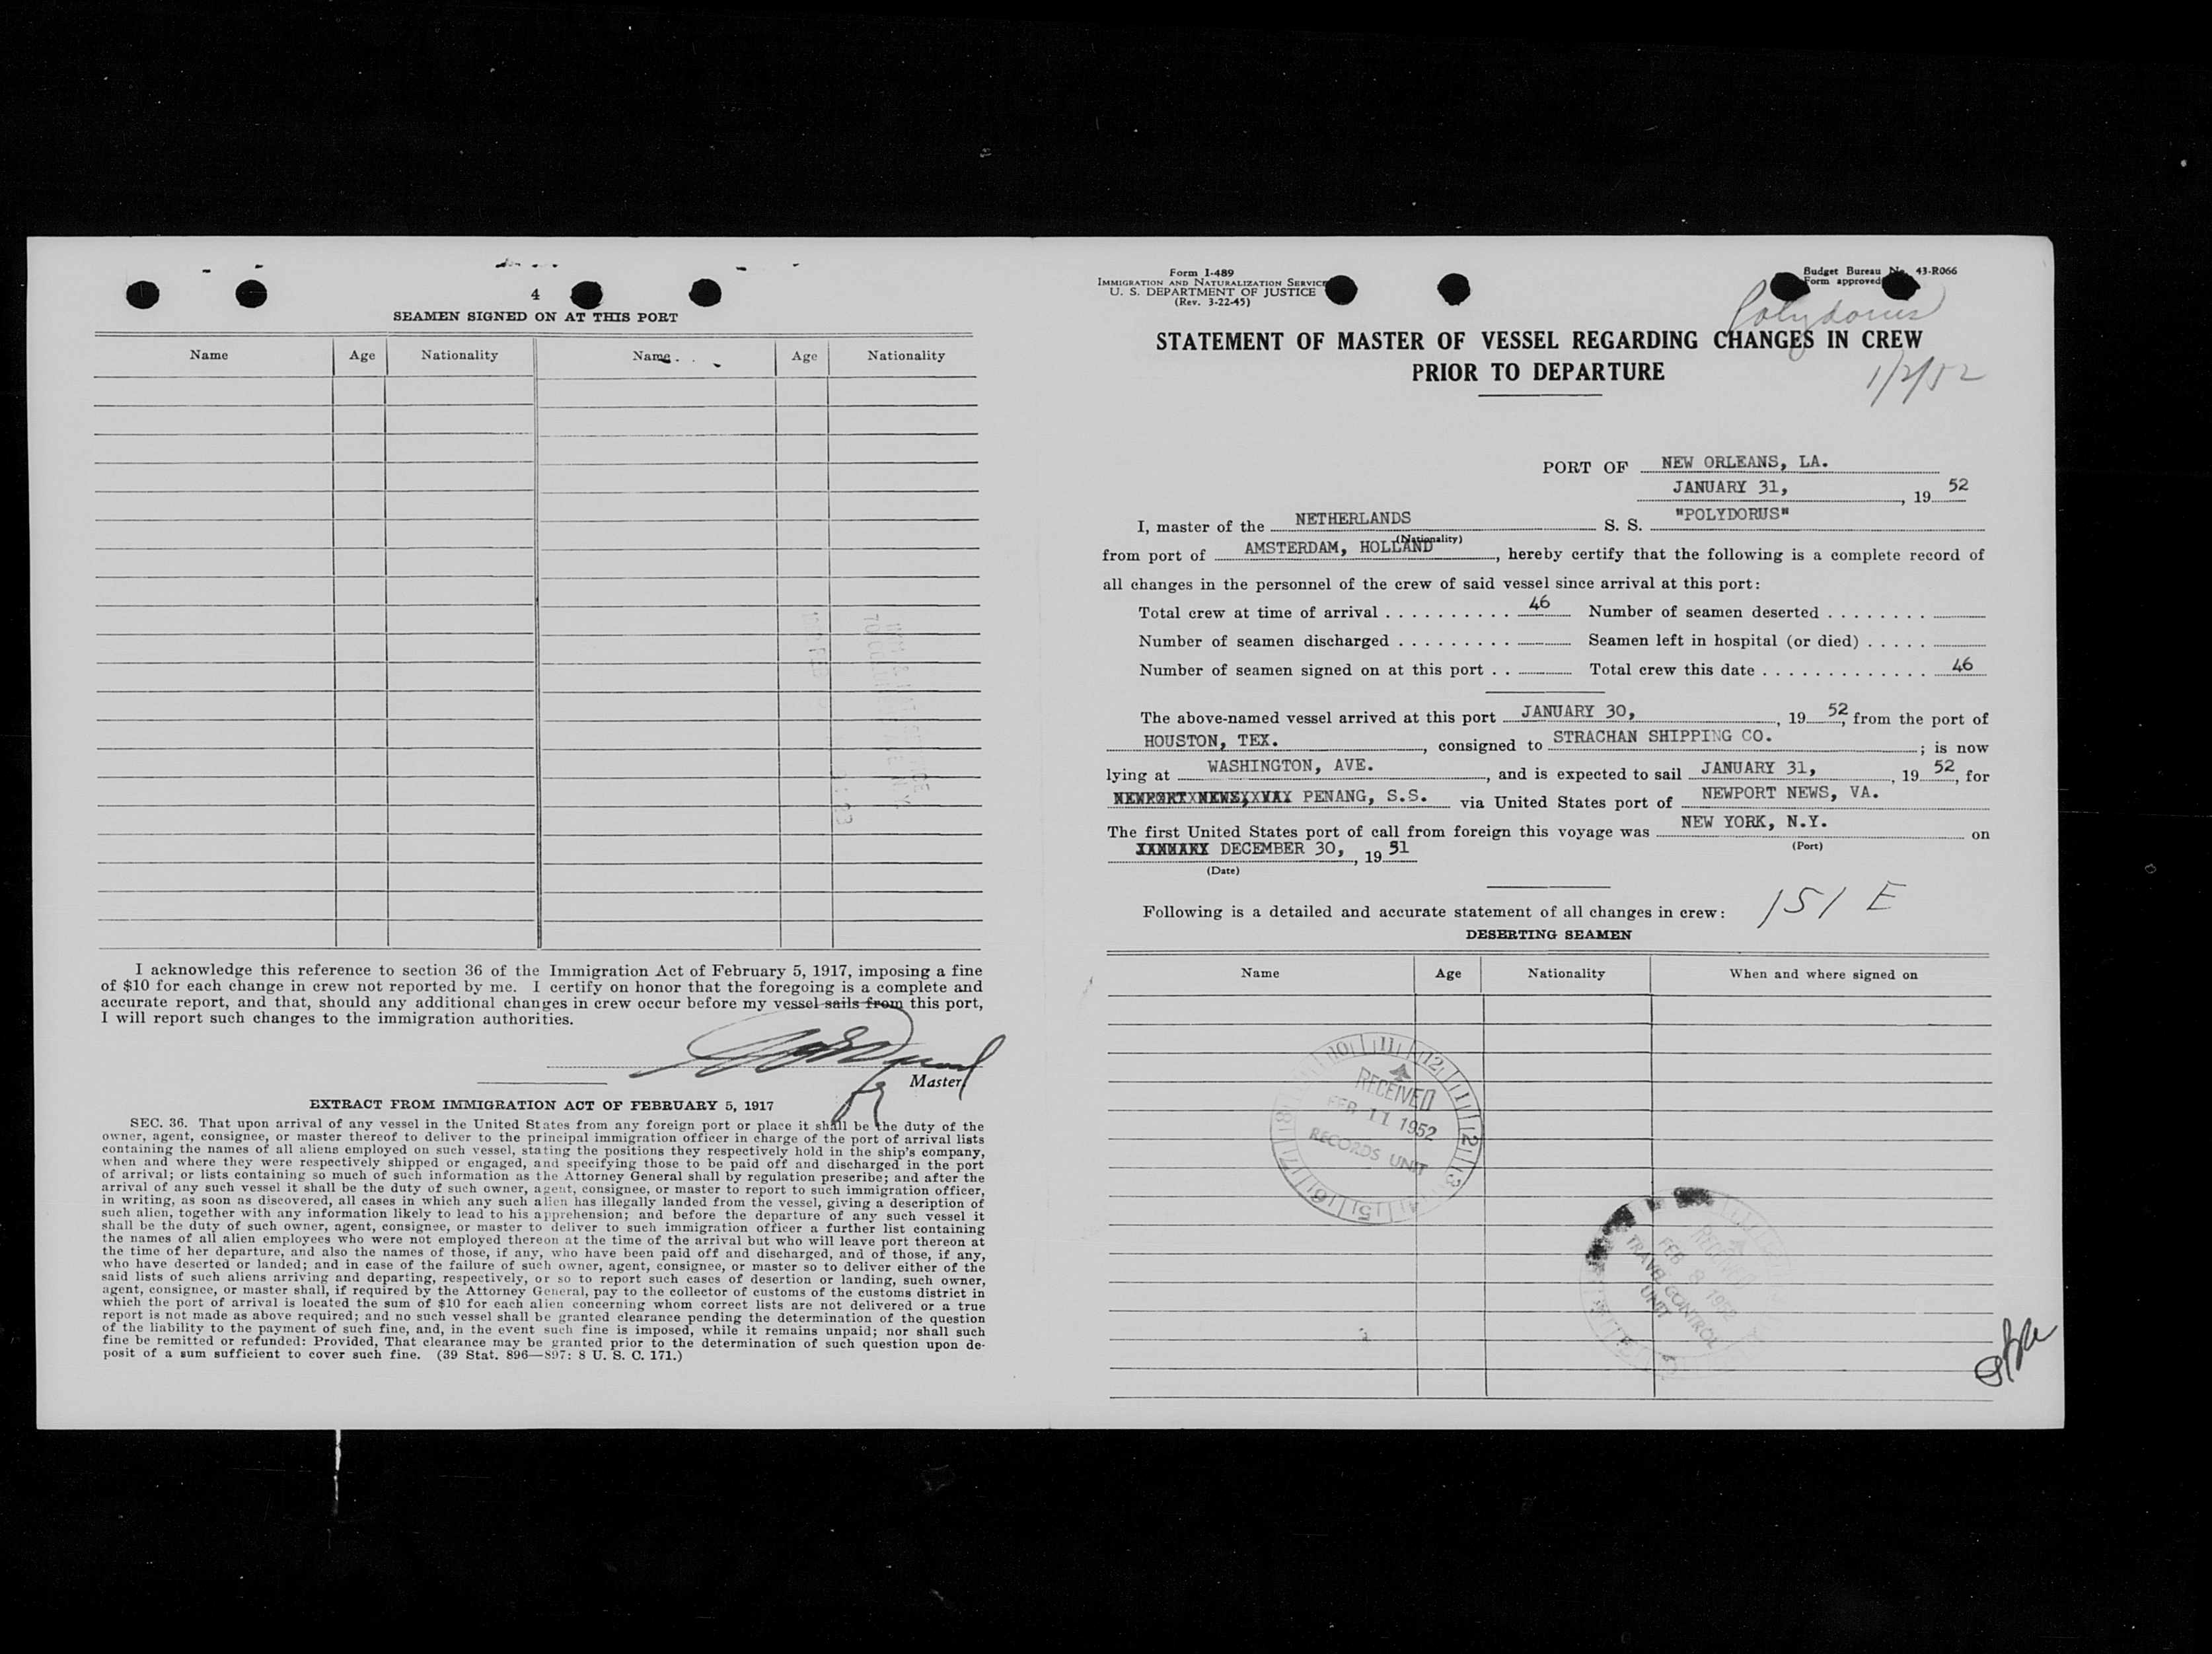 4
SEAMEN SIGNED ON AT THIS PORT
Name Age Nationality Name Age Nationality
I acknowledge this reference to section 36 of the Immigration Act of February 5, 1917, imposing a fine
of $10 for each change in crew not reported by me. I certify on honor that the foregoing is a complete and
accurate report, and that, should any additional changes in crew occur before my vessel sails from this port,
I will report such changes to the immigration authorities.
Master
EXTRACT FROM IMMIGRATION ACT OF FEBRUARY 5, 1917
SEC. 36. That upon arrival of any vessel in the United States from any foreign port or place it shall be the duty of the
owner, agent, consignee, or master thereof to deliver to the principal immigration officer in charge of the port of arrival lists
containing the names of all aliens employed on such vessel, stating the positions they respectively hold in the ship's company,
when and where they were respectively shipped or engaged, and specifying those to be paid off and discharged in the port
of arrival; or lists containing so much of such information as the Attorney General shall by regulation prescribe; and after the
arrival of any such vessel it shall be the duty of such owner, agent, consignee, or master to report to such immigration officer,
in writing, as soon as discovered, all cases in which any such alien has illegally landed from the vessel, giving a description of
such alien, together with any information likely to lead to his apprehension; and before the departure of any such vessel it
shall be the duty of such owner, agent, consignee, or master to deliver to such immigration officer a further list containing
the names of all alien employees who were not employed thereon at the time of the arrival but who will leave port thereon at
the time of her departure, and also the names of those, if any, who have been paid off and discharged, and of those, if any,
who have deserted or landed; and in case of the failure of such owner, agent, consignee, or master so to deliver either of the
said lists of such aliens arriving and departing, respectively, or so to report such cases of desertion or landing, such owner,
agent, consignee, or master shall, if required by the Attorney General, pay to the collector of customs of the customs district in
which the port of arrival is located the sum of $10 for each alien concerning whom correct lists are not delivered or a true
report is not made as above required; and no such vessel shall be granted clearance pending the determination of the question
of the liability to the payment of such fine, and, in the event such fine is imposed, while it remains unpaid; nor shall such
fine be remitted or refunded: Provided, That clearance may be granted prior to the determination of such question upon de-
posit of a sum sufficient to cover such fine. (39 Stat. 896—897: 8 U. S. C. 171.)
Form I-489
IMMIGRATION AND NATURALIZATION SERVICE
U. S. DEPARTMENT OF JUSTICE
(Rev. 3-22-45)
Budget Bureau No. 43-R066
Form approved
Polydorus
STATEMENT OF MASTER OF VESSEL REGARDING CHANGES IN CREW
PRIOR TO DEPARTURE
1/2/52
PORT OF NEW ORLEANS, LA.
JANUARY 31, , 19 52
I, master of the NETHERLANDS S. S. "POLYDORUS"
(Nationality)
from port of AMSTERDAM, HOLLAND , hereby certify that the following is a complete record of
all changes in the personnel of the crew of said vessel since arrival at this port:
Total crew at time of arrival 46 Number of seamen deserted
Number of seamen discharged Seamen left in hospital (or died)
Number of seamen signed on at this port Total crew this date 46
The above-named vessel arrived at this port JANUARY 30, , 19 52, from the port of
HOUSTON, TEX. , consigned to STRACHAN SHIPPING CO. ; is now
lying at WASHINGTON, AVE. , and is expected to sail JANUARY 31, , 19 52, for
NEWPORT NEWS, VA. PENANG, S.S. via United States port of NEWPORT NEWS, VA.
The first United States port of call from foreign this voyage was NEW YORK, N.Y. on
(Port)
JANUARY DECEMBER 30, , 19 51
(Date)
Following is a detailed and accurate statement of all changes in crew: 151 E
DESERTING SEAMEN
Name Age Nationality When and where signed on
10 11 12 1 2 3 4 5 6 7 8
RECEIVED
FEB 11 1952
RECORDS UNIT
RECEIVED
FEB 8 1952
TRAVEL CONTROL
UNIT